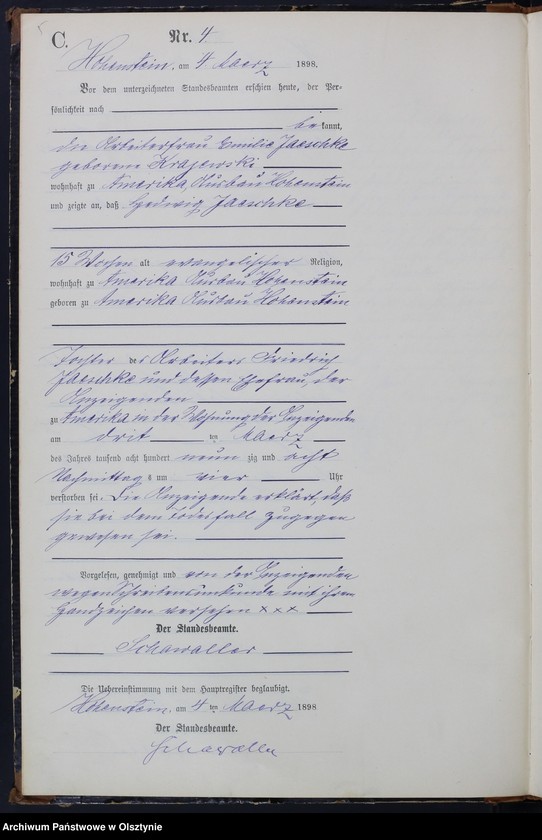 C.
Nr. 4
Hohenstein, am 4 Maerz 1898.
Vor dem unterzeichneten Standesbeamten erschien heute, der Per-
sönlichkeit nach
bekannt,
die Arbeiterfrau Emilie Jaeschke
geborene Krajewski
wohnhaft zu Amerika, Ausbau Hohenstein
und zeigte an, daß Hedwig Jaeschke
15 Wochen alt evangelischer Religion,
wohnhaft zu Amerika Ausbau Hohenstein
geboren zu Amerika Ausbau Hohenstein
Tochter des Arbeiters Friedrich
Jaeschke und dessen Ehefrau, der
Anzeigenden
zu Amerika in der Wohnung der Anzeigenden
am dritten Maerz
des Jahres tausend acht hundert neunzig und acht
Nachmittags um vier Uhr
verstorben sei. Die Anzeigende erklärt, daß
sie bei dem Todesfall zugegen
gewesen sei.
Vorgelesen, genehmigt und von der Anzeigenden
wegen Schreibensunkunde mit ihrem
Handzeichen versehen xxx
Der Standesbeamte.
Schawaller
Die Uebereinstimmung mit dem Hauptregister beglaubigt.
Hohenstein, am 4 ten Maerz 1898
Der Standesbeamte.
Schawaller
Archiwum Państwowe w Olsztynie